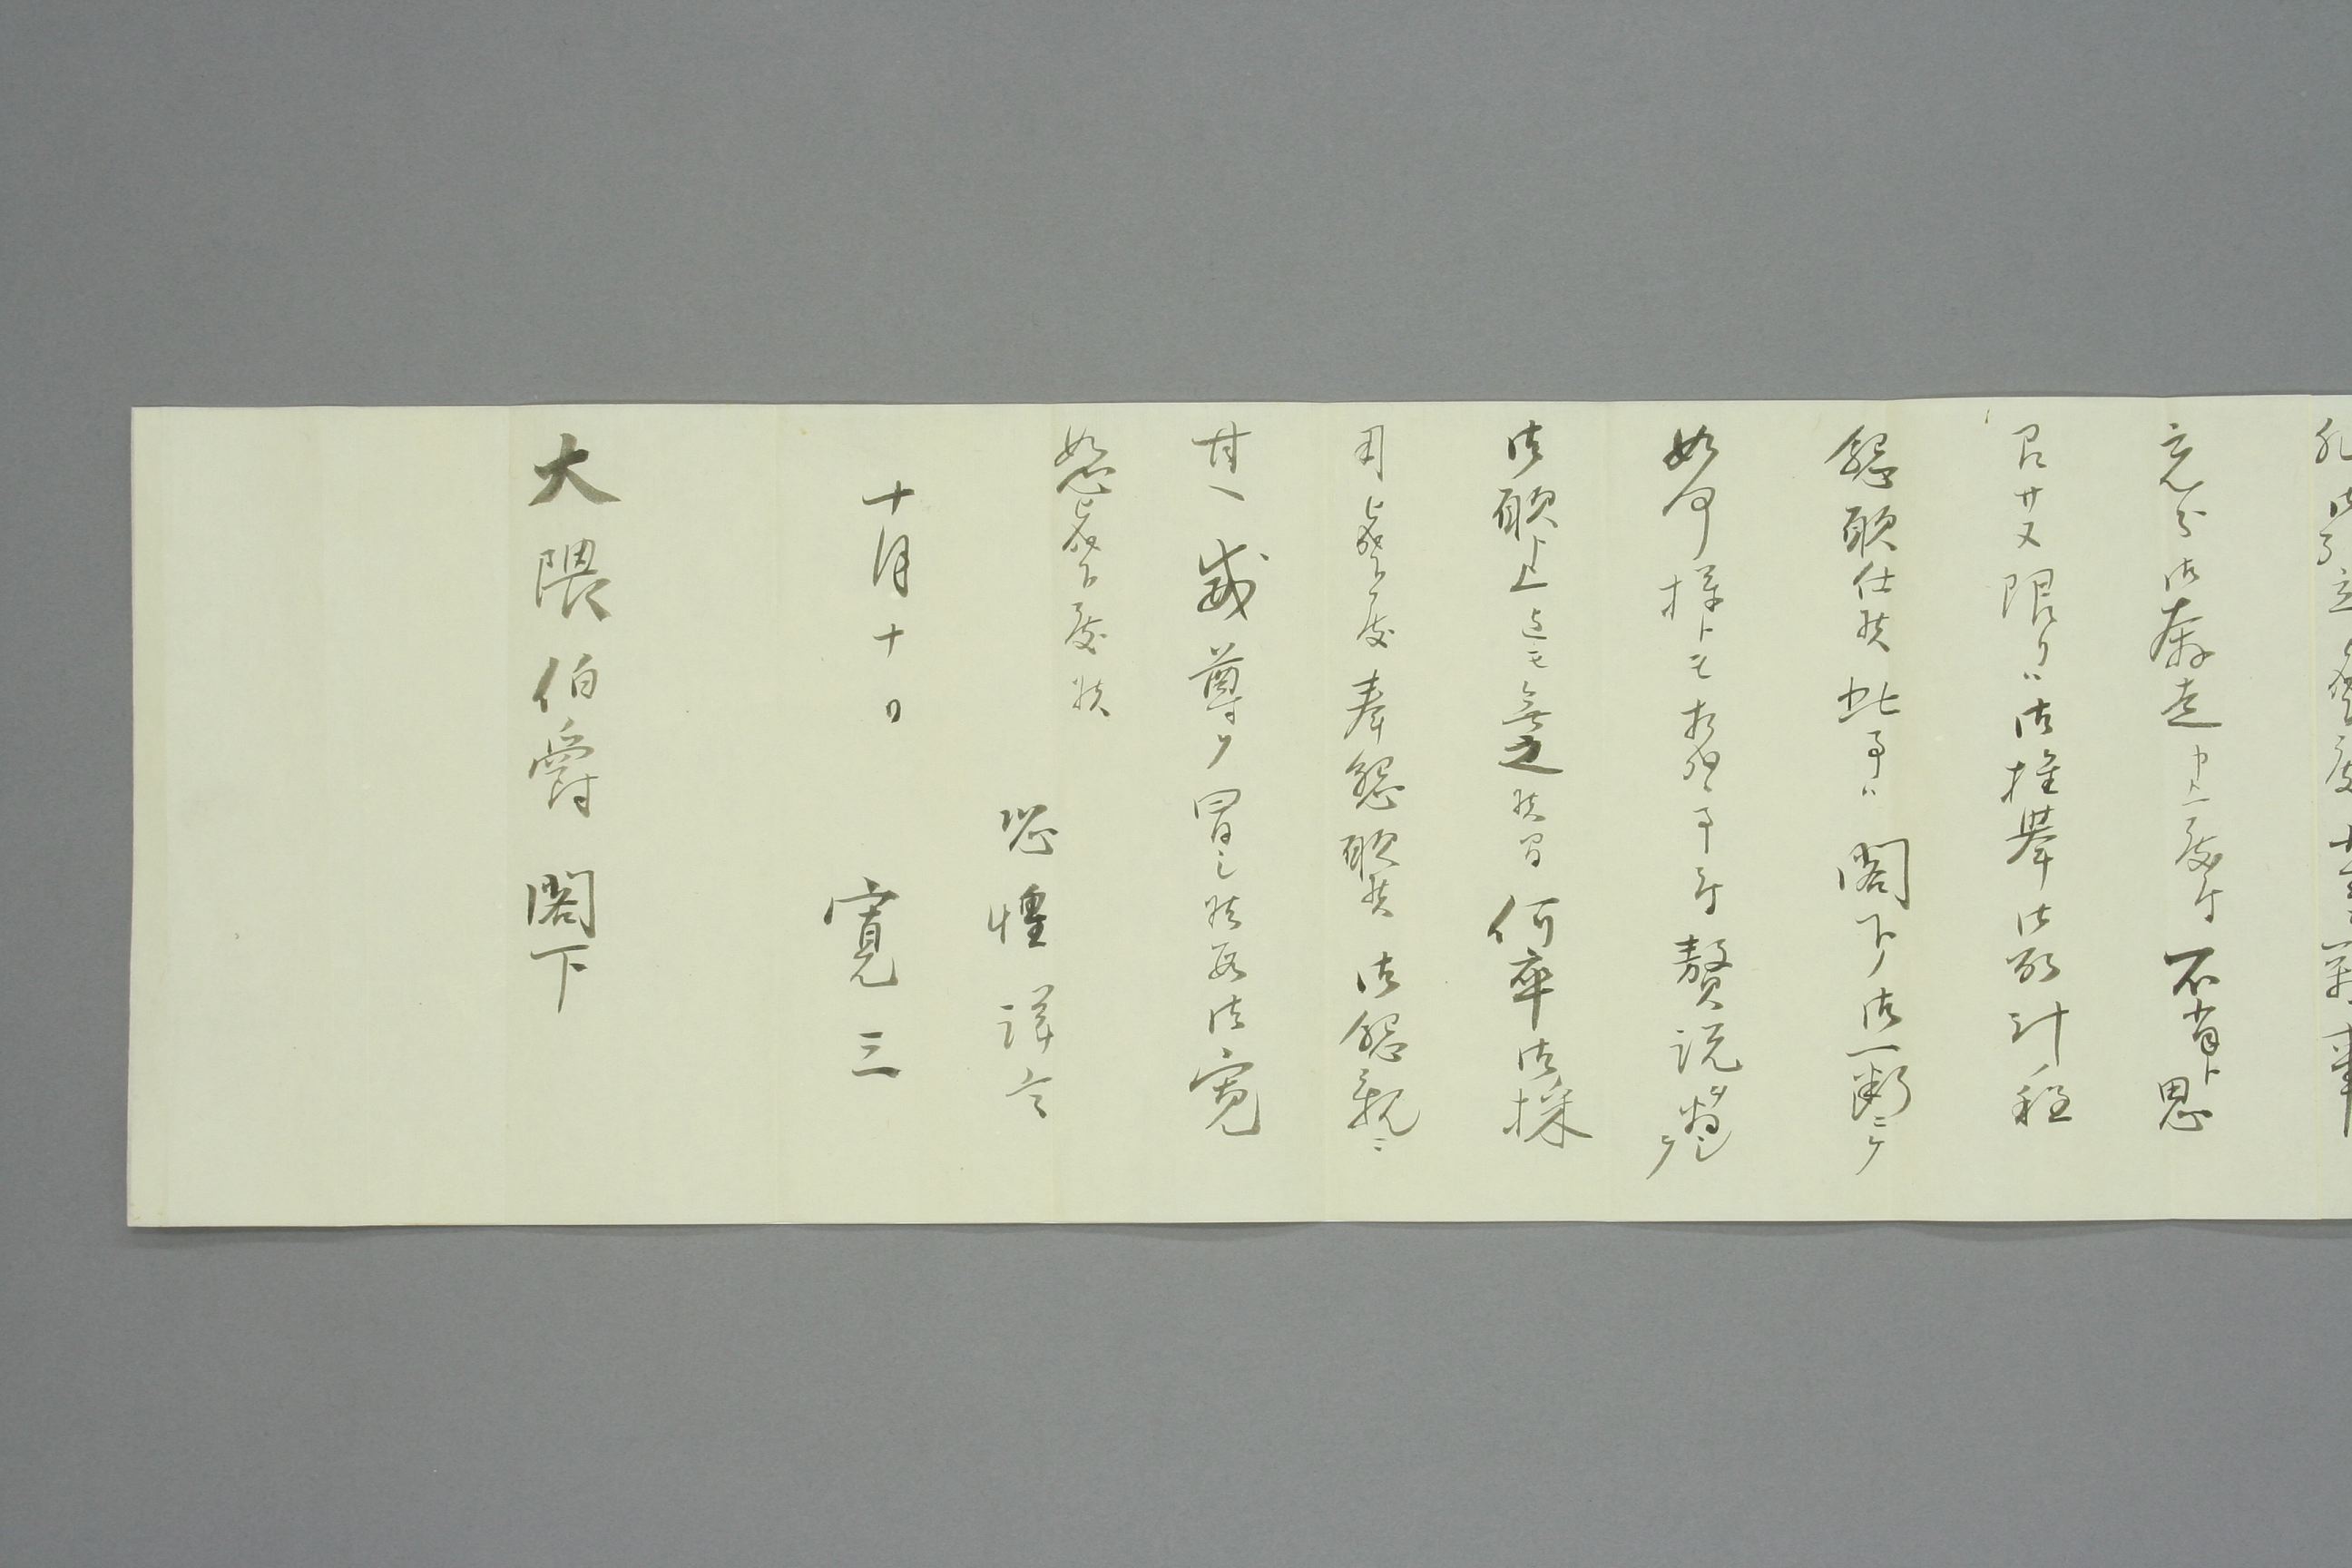 充分御奔走申上度ニ付不肖ト思
召サヌ限リハ御推挙御取計程
懇願仕候此事ハ閣下ノ御一断ニテ
如何様トモ相成候事ニ付贅説ヲ
御願申上迄モ無之候間何卒御採
用被成下度奉懇願候御懇親ニ
甘ヘ威尊ヲ冒シ候段御寛
恕被成下度候
恐惶謹言
十月十日
寛三
大隈伯爵閣下